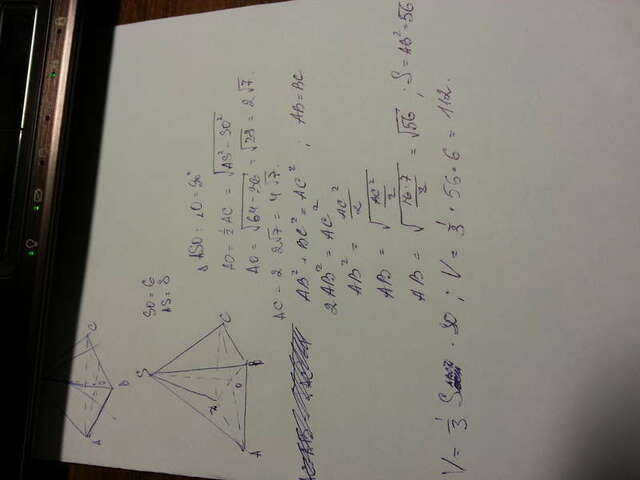 SO = 6
AS = 8
Δ ASO: ∠O = 90°
AO = ½ AC = √(AS² − SO²)
AO = √(64 − 36) = √28 = 2√7.
AC = 2 · 2√7 = 4√7.
AB² + BC² = AC² ; AB = BC
2AB² = AC²
AB² = AC²/2
AB = √(AC²/2)
AB = √(16·7/2) = √56 ; S = AB² = 56
V = ⅓ S · SO ; V = ⅓ · 56 · 6 = 112.
S
C
B
O
A
C
D
A